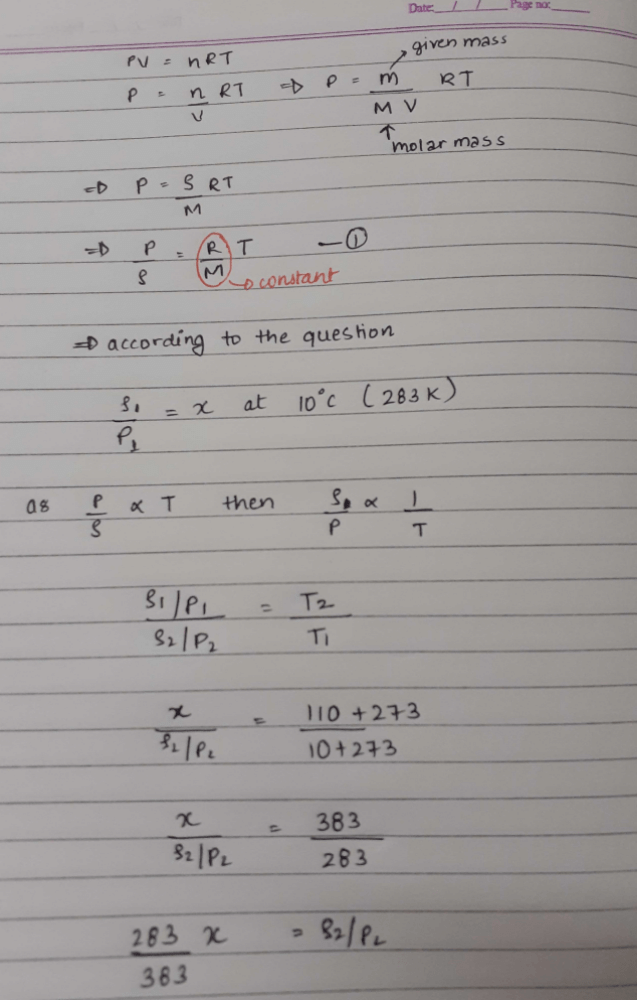 Date: / / Page no:
given mass
PV = nRT
P = n/V RT ⇒ P = m/MV RT
molar mass
⇒ P = ρRT/M
⇒ P/ρ = R/M T — ①
constant
⇒ according to the question
ρ1/P1 = x at 10°C (283K)
as P/ρ ∝ T then ρ/P ∝ 1/T
ρ1/P1 / ρ2/P2 = T2/T1
x / ρ2/P2 = 110 + 273 / 10 + 273
x / ρ2/P2 = 383/283
283/383 x = ρ2/P2